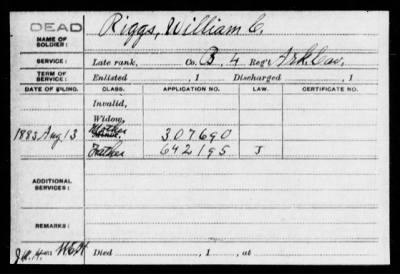 DEAD
NAME OF SOLDIER: Riggs, William C.
SERVICE: Late rank, Co. B, 4 Reg't Ark Cav.
TERM OF SERVICE: Enlisted , 1 Discharged , 1
DATE OF FILING. CLASS. APPLICATION NO. LAW. CERTIFICATE NO.
Invalid,
Widow,
1883 Aug 13 Mother 307690
Father 642195 J
ADDITIONAL SERVICES:
REMARKS:
Died , 1 , at